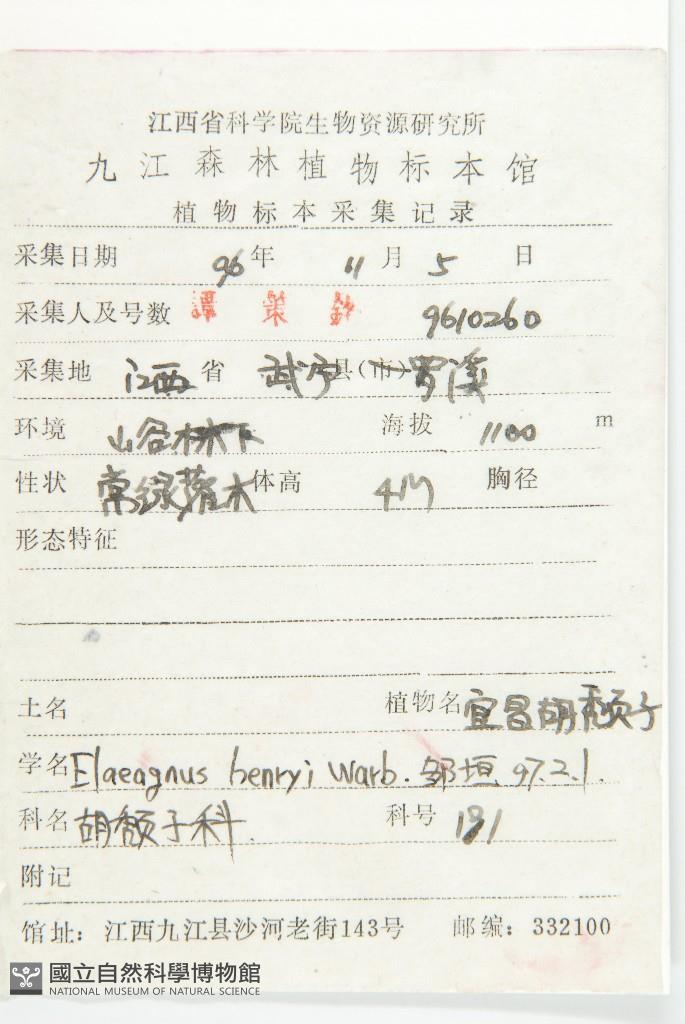 江西省科学院生物资源研究所
九江森林植物标本馆
植物标本采集记录
采集日期 96年 11月 5 日
采集人及号数 9610260
采集地 江西省 武宁县(市) 罗溪
环境 山谷林下 海拔 1100 m
性状 常绿灌木 体高 4M 胸径
形态特征
土名 植物名 宜昌胡颓子
学名 Elaeagnus henryi Warb. 邹垣 97.2.1.
科名 胡颓子科 科号 191
附记
馆址：江西九江县沙河老街143号 邮编：332100
國立自然科學博物館
NATIONAL MUSEUM OF NATURAL SCIENCE